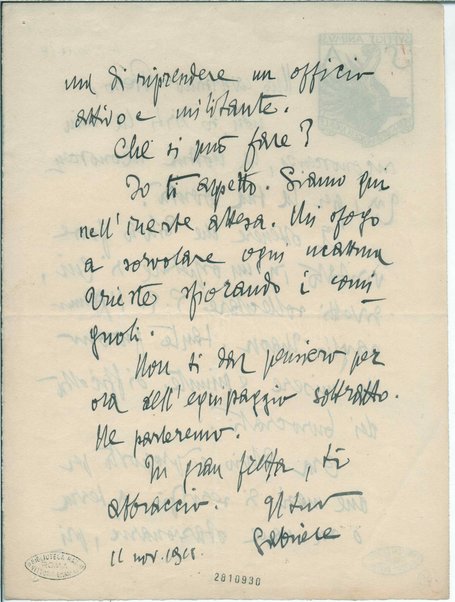 ma di riprendere un officio
attivo e militante.
Che si può fare?
Io ti aspetto. Siamo qui
nell'inerte attesa. Mi sfogo
a sorvolare ogni mattina
Trieste sfiorando i comi
gnoli.
Non ti dar pensiero per
ora dell'equipaggio sottratto.
Ne parleremo.
In gran fretta, ti
abbraccio. Il tuo
Gabriele
11 nov. 1918
BIBLIOTECA
ROMA
VITTORIO EMANUELE
2810930